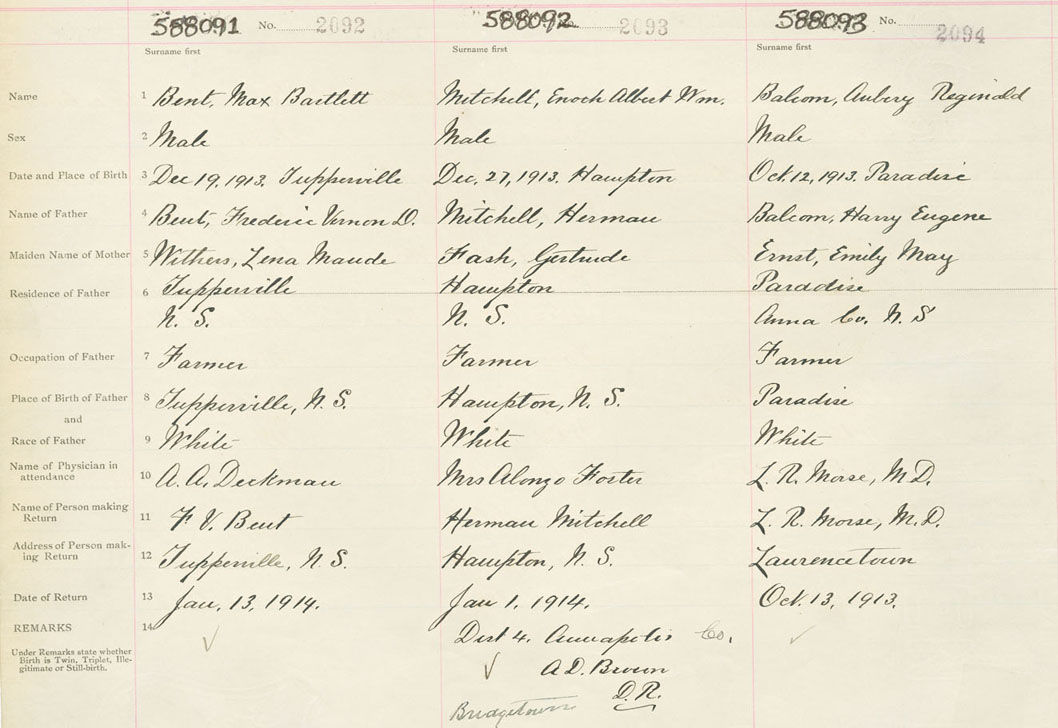 588091 No. 2092 588092 2093 588093 No. 2094
Surname first Surname first Surname first
Name 1 Bent, Max Bartlett Mitchell, Enoch Albert Wm. Balcom, Aubery Reginald
Sex 2 Male Male Male
Date and Place of Birth 3 Dec 19, 1913. Tupperville Dec. 27, 1913. Hampton Oct. 12, 1913. Paradise
Name of Father 4 Bent, Frederic Vernon D. Mitchell, Herman Balcom, Harry Eugene
Maiden Name of Mother 5 Withers, Lena Maude Fash, Gertrude Ernst, Emily May
Residence of Father 6 Tupperville Hampton Paradise
N. S. N. S. Anna Co. N. S
Occupation of Father 7 Farmer Farmer Farmer
Place of Birth of Father 8 Tupperville, N. S. Hampton, N. S. Paradise
and
Race of Father 9 White White White
Name of Physician in
attendance 10 A. A. Deckman Mrs Alonzo Foster L. R. Morse, M D.
Name of Person making
Return 11 F V. Bent Herman Mitchell L. R. Morse, M. D.
Address of Person mak-
ing Return 12 Tupperville, N. S. Hampton, N. S. Laurencetown
Date of Return 13 Jan. 13, 1914. Jan 1. 1914. Oct. 13, 1913.
REMARKS 14 Dist 4. Annapolis Co.
Under Remarks state whether
Birth is Twin, Triplet, Ille-
gitimate or Still-birth.
A D. Brown
D. R.
Bridgetown